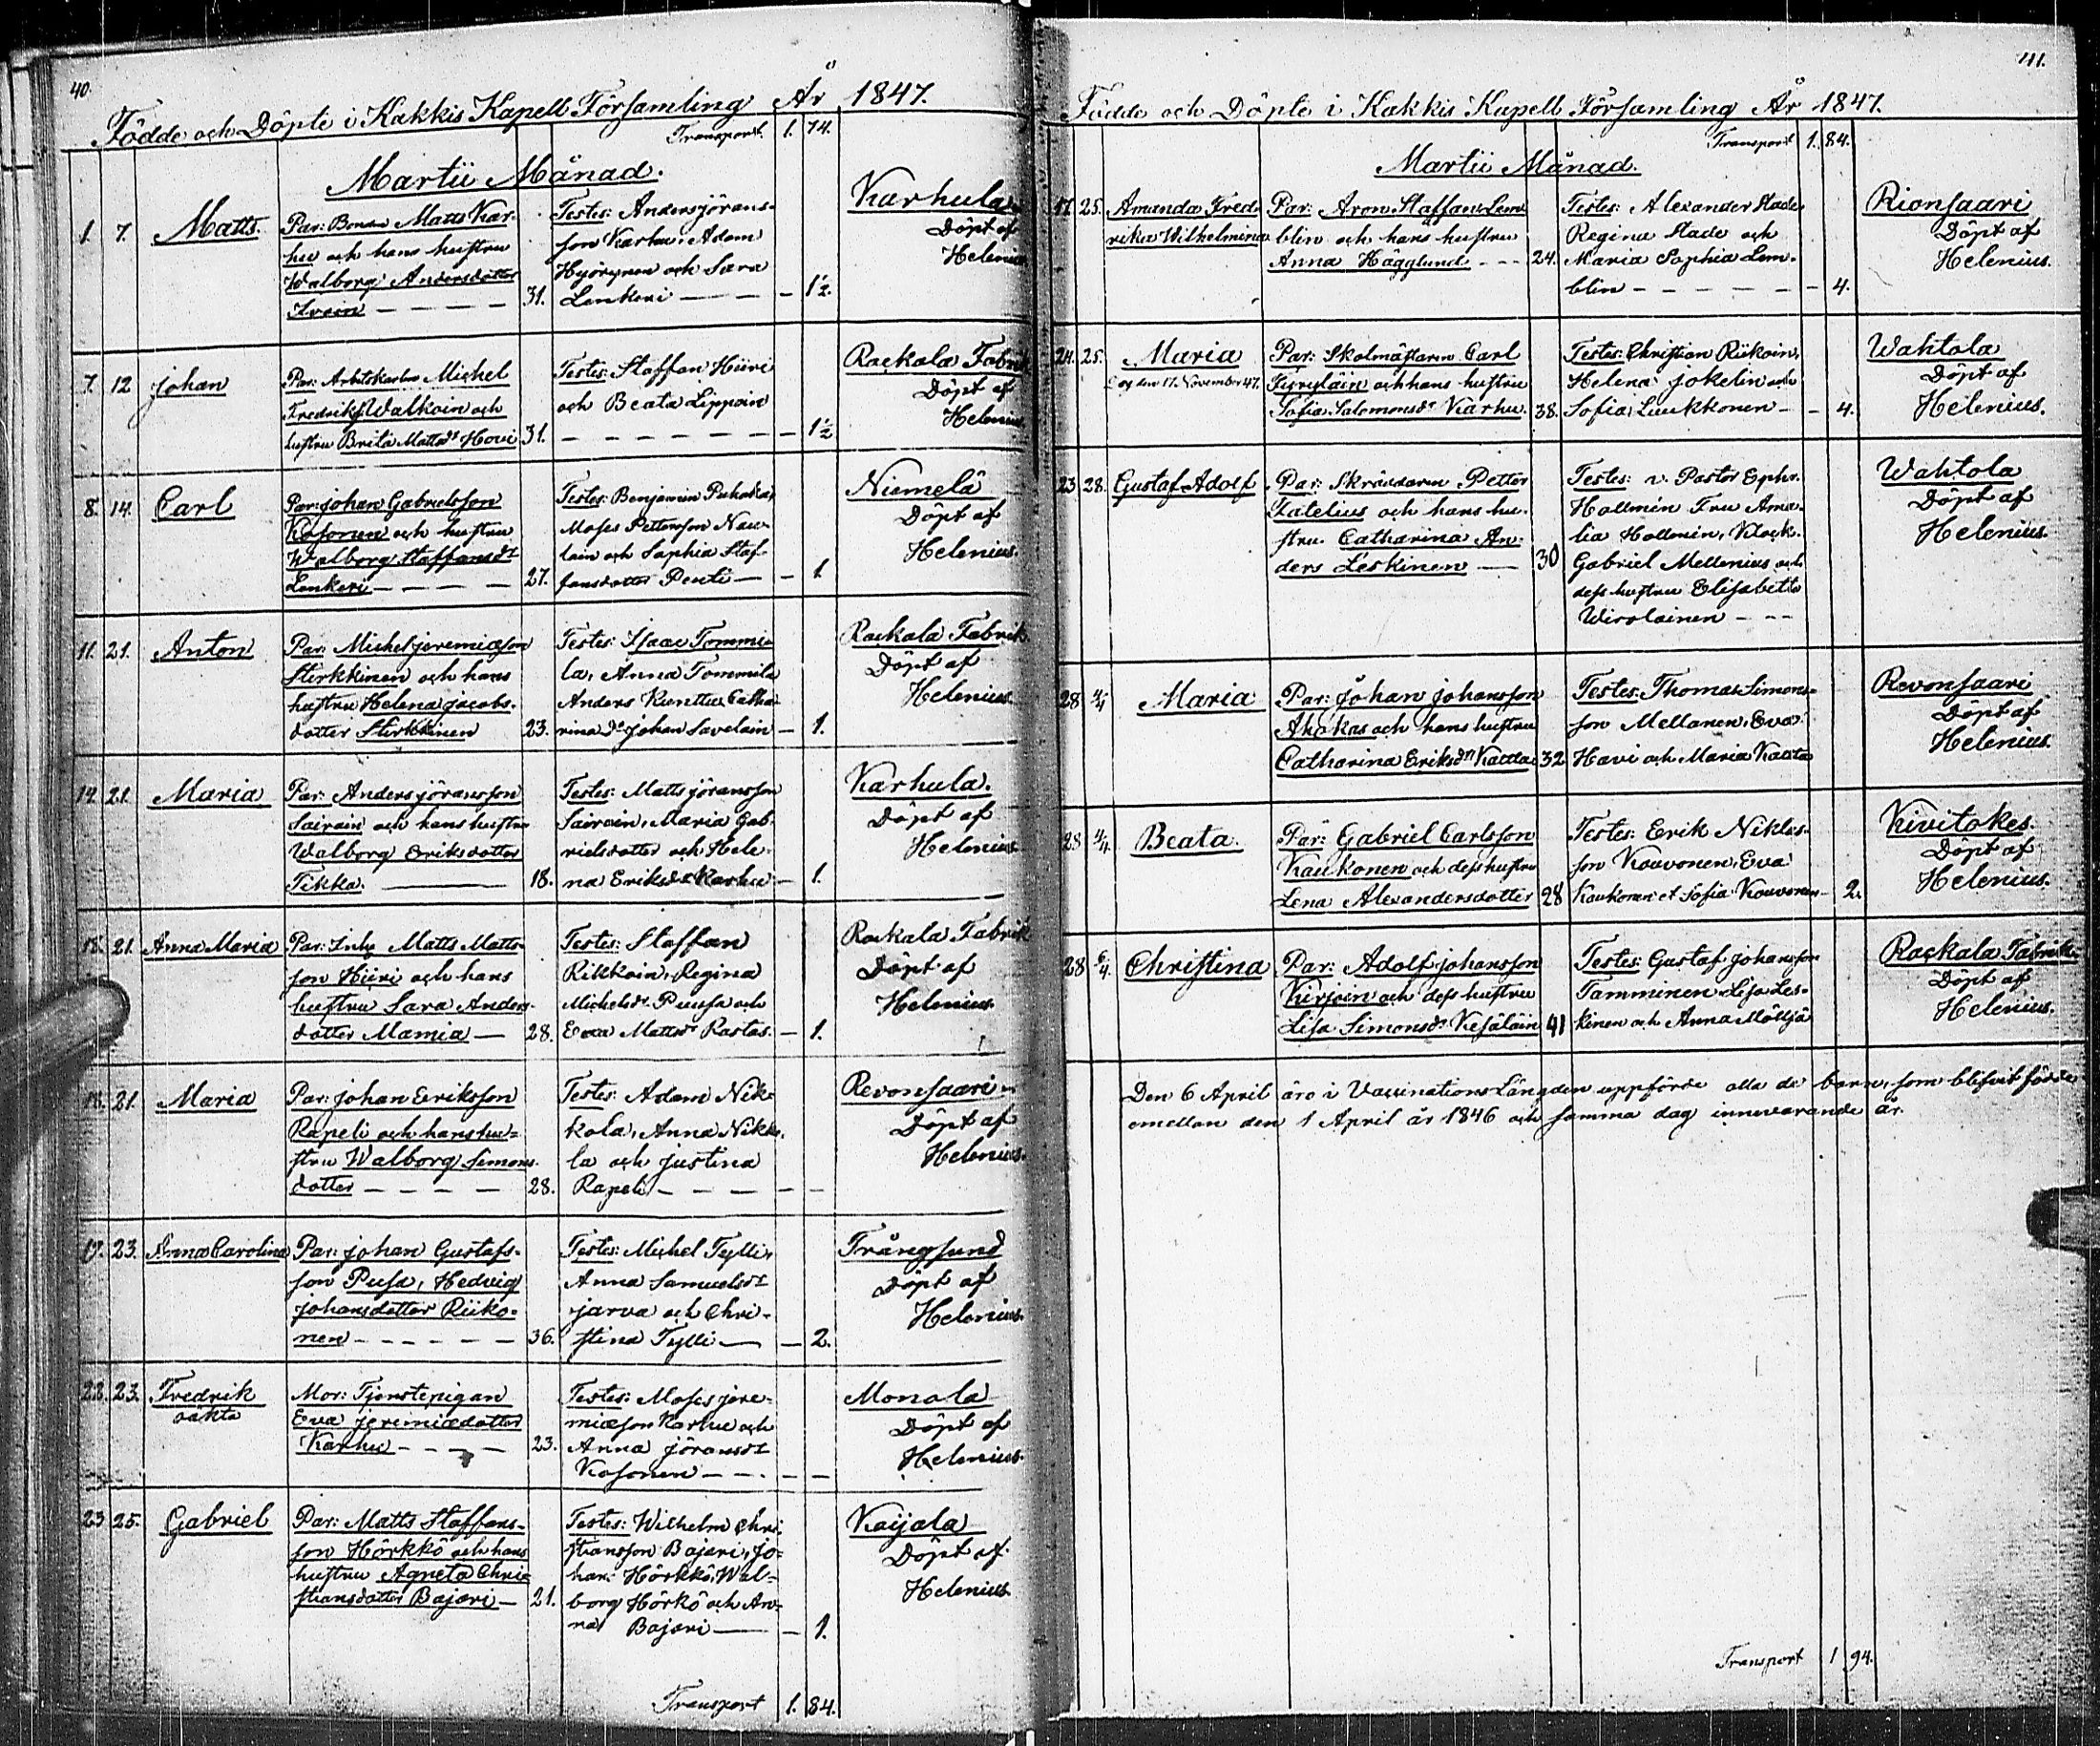 40.
Födde och Döpte i Kakkis Kapell Församling År 1847.
Transport. 1. 74.
Martii Månad.
1. 7. Matts. Par: Bonden Matts Kar-
hu och hans hustru
Walborg Andersdotter
31.
Testes: Anders Jörans-
son Karhu, Adam
Hyörynen och Sara
Lenkeri — — — 1½.
Karhula.
Döpt af
Helenius
7. 12 Johan Par: Arbetskarlen Michel
Fredrikss Walkoin och
hustru Brita Mattsdr Hovi 31.
Testes: Staffan Hiiri
och Beata Lippoin
— — — — — — 1½
Rackala Fabrik
Döpt af
Helenius
8. 14. Carl Par: Johan Gabrielsson
Kosonen och hustru
Walborg Staffansdr
Lenkeri — — — — 27.
Testes: Benjamin
Moses Pettersson Nau-
lain och Sophia Staf-
fansdotter Penti — — 1.
Niemelä
Döpt af
Helenius.
11. 21. Anton Par: Michel Jeremiæson
Sterkkinen och hans
hustru Helena Jacobs-
dotter Sterkkinen 23.
Testes: Isaac Tommi-
la, Anna Tommila
Anders Kunttu, Catha-
rina dr Johan Savelain — 1.
Rackala Fabrik
Döpt af
Helenius.
14. 21. Maria Par: Anders Jöransson
Sairain och hans hustru
Walborg Eriksdotter
Tikka. ——— 18.
Testes: Matts Jöransson
Sairain, Maria Gab-
rielsdotter och Hele-
na Eriksdr Karhu — 1.
Karhula.
Döpt af
Helenius
18. 21. Anna Maria Par: Inhs Matts Matts-
son Hiiri och hans
hustru Sara Anders-
dotter Mamia — 28.
Testes: Staffan
Rikkoin, Regina
Michelsdr Puusa och
Eva Mattsdr Rastas. — 1.
Rackala Fabrik
Döpt af
Helenius.
18. 21. Maria Par: Johan Eriksson
Rapeli och hans hu-
stru Walborg Simons-
dotter — — — — 28.
Testes: Adam Nik-
kola, Anna Nikko-
la och Justina
Rapeli — — — — —
Revonsaari
Döpt af
Helenius.
19. 23. Anna Carolina Par: Johan Gustafs-
son Pusa, Hedvig
Johansdotter Riiko-
nen — — — — — 36.
Testes: Michel Tylli,
Anna Samuelsdr
Jarva och Chri-
stina Tylli — — 2.
Trångsund
Döpt af
Helenius.
22. 23. Fredrik
oäkta
Mor: Tjenstepigan
Eva Jeremiædotter
Karhu — — — — 23.
Testes: Moses Jere-
miæson Karhu och
Anna Jöransdr
Kosonen — — — —
Monola
Döpt af
Helenius.
23 25. Gabriel Par: Matts Staffans-
son Hörkkö och hans
hustru Agneta Chri-
stiansdotter Bajari — 21.
Testes: Wilhelm Chri-
stiansson Bajari, Jo-
han Hörkkö, Wal-
borg Hörkö och An-
na Bajari —— — 1.
Kaijala
Döpt af
Helenius.
Transport 1. 84.
41.
Födde och Döpte i Kakkis Kapell Församling År 1847.
Transport 1. 84.
Martii Månad.
17. 25. Amanda Fred-
rika Wilhelmina
Par: Aron Staffan Lem-
blin och hans hustru
Anna Hägglund — — 24.
Testes: Alexander Stade
Regina Stade och
Maria Sophia Lem-
blin — — — — — — 4.
Rionsaari
Döpt af
Helenius.
24. 25. Maria
den 17. November 47.
Par: Skolmästaren Carl
och hans hustru
Sofia Salomonsdr Karhu. 38.
Testes: Christian Riikoin,
Helena Jokelin och
Sofia Luukkonen — — 4.
Wahtola
Döpt af
Helenius.
23 28. Gustaf Adolf Par: Skräddaren Petter
Fatelius och hans hu-
stru Catharina An-
ders Leskinen — 30
Testes: v. Pastor Ephr.
Hollmén Fru Ama-
lia Hollmén, Klock.
Gabriel Mellenius och
dess hustru Elisabetta
Wirolainen — — —
Wahtola
Döpt af
Helenius.
28 4/4 Maria Par: Johan Johansson
Ahokas och hans hustru
Catharina Eriksdr Kaatta 32
Testes: Thomas Simons-
son Mellanen, Eva
Havi och Maria Kaatta
Revonsaari
Döpt af
Helenius.
28 4/4. Beata. Par: Gabriel Carlsson
Kaukonen och dess hustru
Lena Alexandersdotter 28
Testes: Erik Niklas-
son Kouvonen, Eva
Kaukonen et Sofia Kouvonen — 2.
Kivitokes.
Döpt af
Helenius.
28 6/4. Christina Par: Adolf Johansson
Kirjoin och dess hustru
Lisa Simonsdr Kesäläin 41
Testes: Gustaf Johansson
Tamminen Lisa Les-
kinen och Anna Möllsjä
Rackala Fabrik
Döpt af
Helenius.
Den 6 April äro i VaccinationsLängden uppförde alla de barn, som blifvit födde
emellan den 1 April år 1846 och samma dag innevarande år.
Transport 1 94.